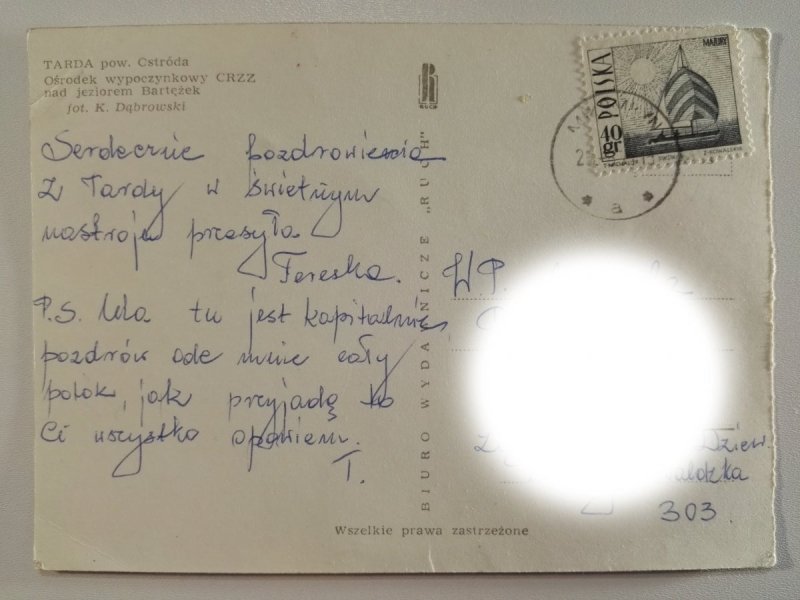 TARDA pow. Ostróda
Ośrodek wypoczynkowy CRZZ
nad jeziorem Bartężek
fot. K. Dąbrowski
RUCH
MAZURY
POLSKA
40 gr
Serdecznie pozdrowienia
z Tardy w świetnym
nastroju przesyła
Tereska.
P.S. Ula tu jest kapitalnie,
pozdrów ode mnie cały
pokók, jak przyjadę to
Ci wszystko opowiem.
T.
BIURO WYDAWNICZE „RUCH"
a
WP.
Dziew.
303.
Wszelkie prawa zastrzeżone